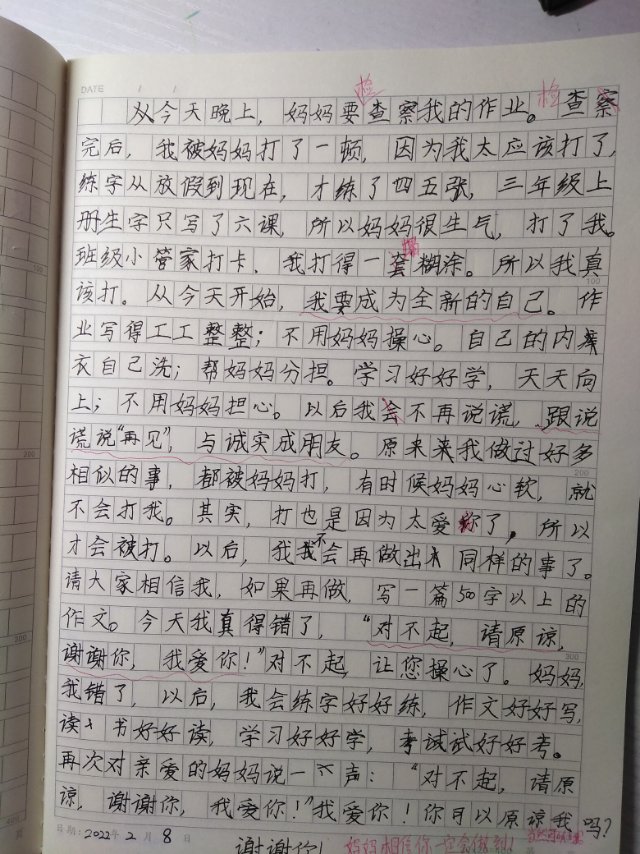 DATE / /
检 检
从今天晚上，妈妈要查察我的作业。查察
完后，我被妈妈打了一顿，因为我太应该打了，
练字从放假到现在，才练了四五张，三年级上
册生字只写了六课，所以妈妈很生气，打了我。
班级小管家打卡，我打得一套糊涂。所以我真
该打。从今天开始，我要成为全新的自己。作
业写得工工整整；不用妈妈操心。自己的内
衣自己洗；帮妈妈分担。学习好好学，天天向
上；不用妈妈担心。以后我会不再说谎，跟说
谎说“再见”，与诚实成朋友。原来来我做过好多
相似的事，都被妈妈打，有时候妈妈心软，就
不会打我。其实，打也是因为太爱你了，所以
才会被打。以后，我不会再做出同样的事了。
请大家相信我，如果再做，写一篇50字以上的
作文。今天我真得错了，“对不起，请原谅，
谢谢你，我爱你！”对不起，让您操心了。妈妈，
我错了，以后，我会练字好好练，作文好好写，
读书好好读，学习好好学，考试试好好考。
再次对亲爱的妈妈说一声：“对不起，请原
谅，谢谢你，我爱你！”我爱你！你可以原谅我吗？
日期：2022年2月8日
谢谢你！ 妈妈相信你一定会做到！